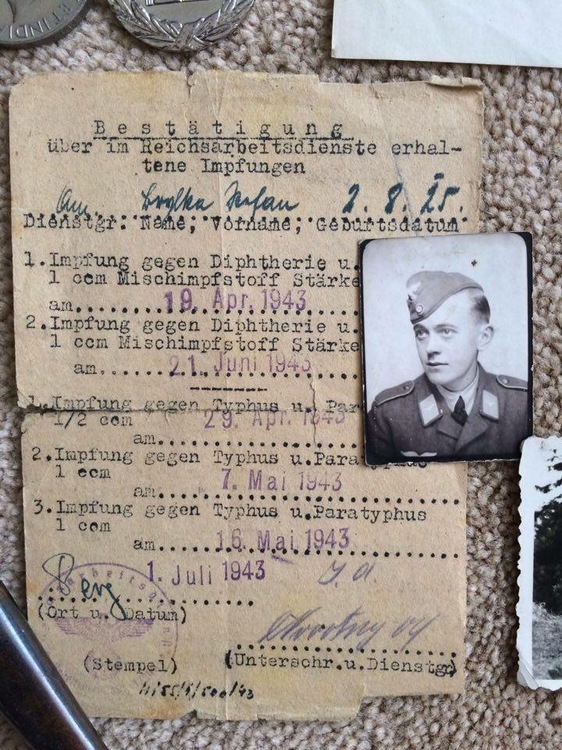 Bestätigung
über im Reichsarbeitsdienste erhal-
tene Impfungen
2. 8. 25.
Dienstgr. Name, Vorname, Geburtsdatum
1. Impfung gegen Diphtherie u.
1 ccm Mischimpfstoff Stärke
am 19. Apr. 1943
2. Impfung gegen Diphtherie u.
1 ccm Mischimpfstoff Stärke
am 21. Juni 1943
1. Impfung gegen Typhus u. Par
1/2 ccm 29. Apr. 1943
am
2. Impfung gegen Typhus u. Paratyphus
1 ccm 7. Mai 1943
am
3. Impfung gegen Typhus u. Paratyphus
1 ccm
am 16. Mai 1943
Berg 1. Juli 1943
(Ort u. Datum)
(Stempel) (Unterschr. u. Dienstgr.